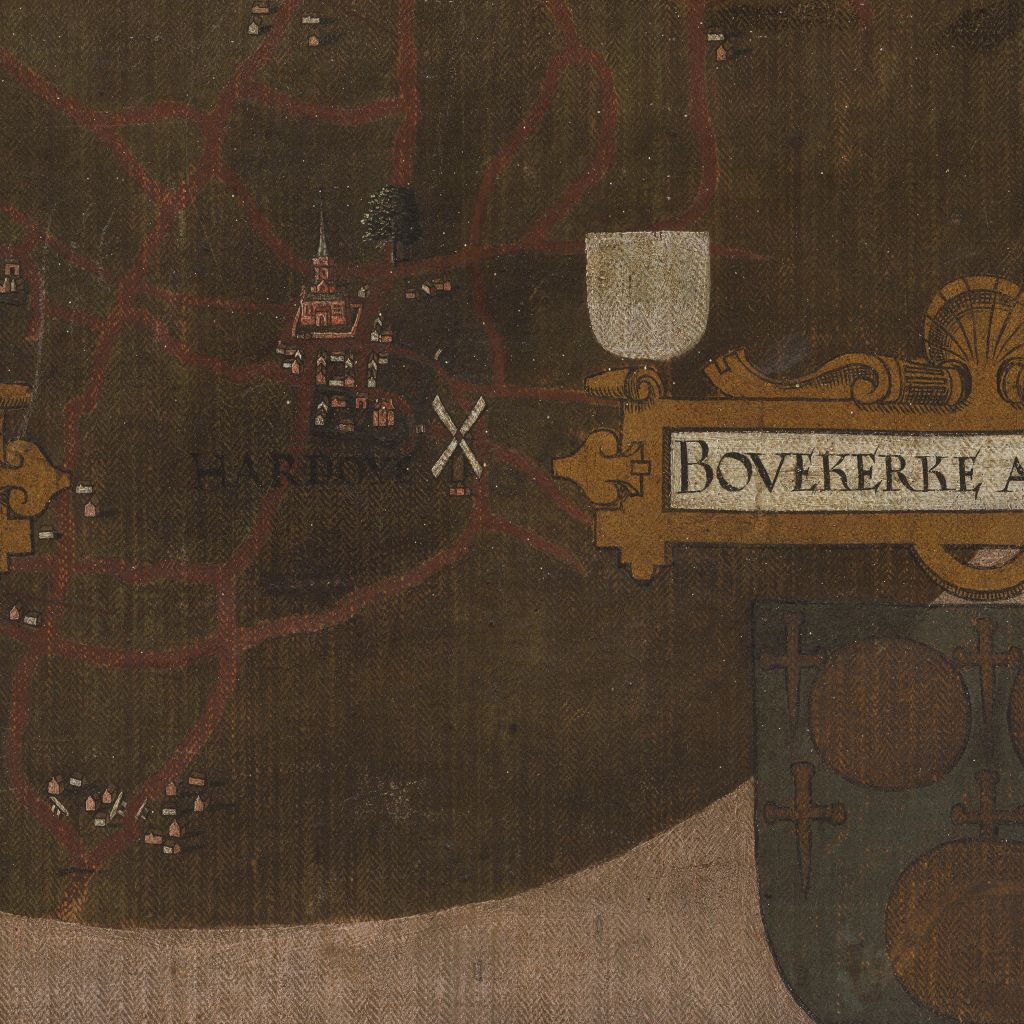 HARDOYE
BOVEKERKE A